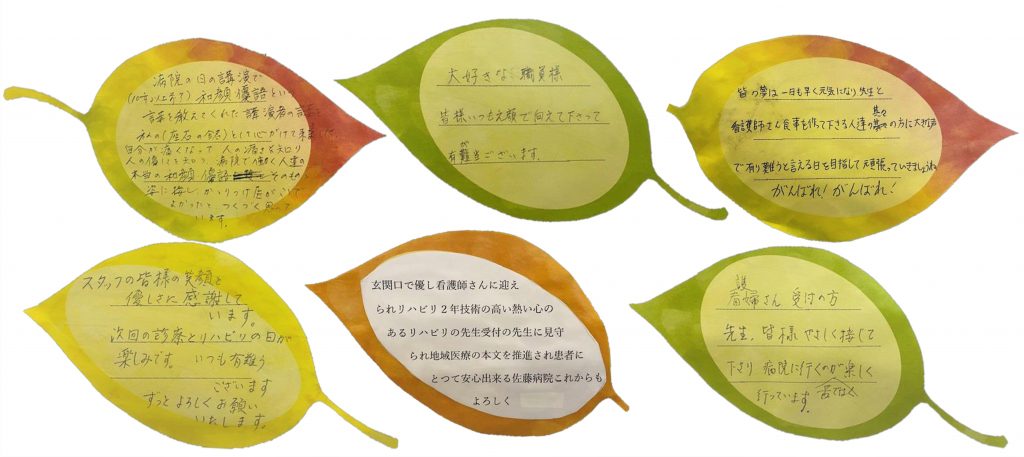 病院の日の講演で
(10年以上前?) 和顔優語という
言葉を教えてくれた講演者の言葉を
私の(座右の銘)として心がけて来ました。
自分が痛くなって人の痛さを知り
人の傷いを知り 病院で働く人達の
本当の和顔優語そのもの
姿に接し、かかりつけ医がここで
よかったと、つくづく思って
います。
大好きな職員様
皆様いつも笑顔で向えて下さって
有難当ございます。
が
皆の夢は一日も早く元気になり先生と
看護師さん食事を作って下さる人達の其々の方に大きな声
で有り難うと言える日を目指して頑張っていきましょうね
がんばれ!がんばれ!
スタッフの皆様の笑顔と
優しさに感謝して
います。
次回の診察とリハビリの日が
楽しみです。いつも有難う
ございます
ずっとよろしくお願い
いたします。
玄関口で優し看護師さんに迎え
られリハビリ2年技術の高い熱い心の
あるリハビリの先生受付の先生に見守
られ地域医療の本文を推進され患者に
とつて安心出来る佐藤病院これからも
よろしく
護
看婦さん 受付の方
先生、皆様 やさしく接して
下さり 病院に行くのが楽しく
行っています。苦ではなく